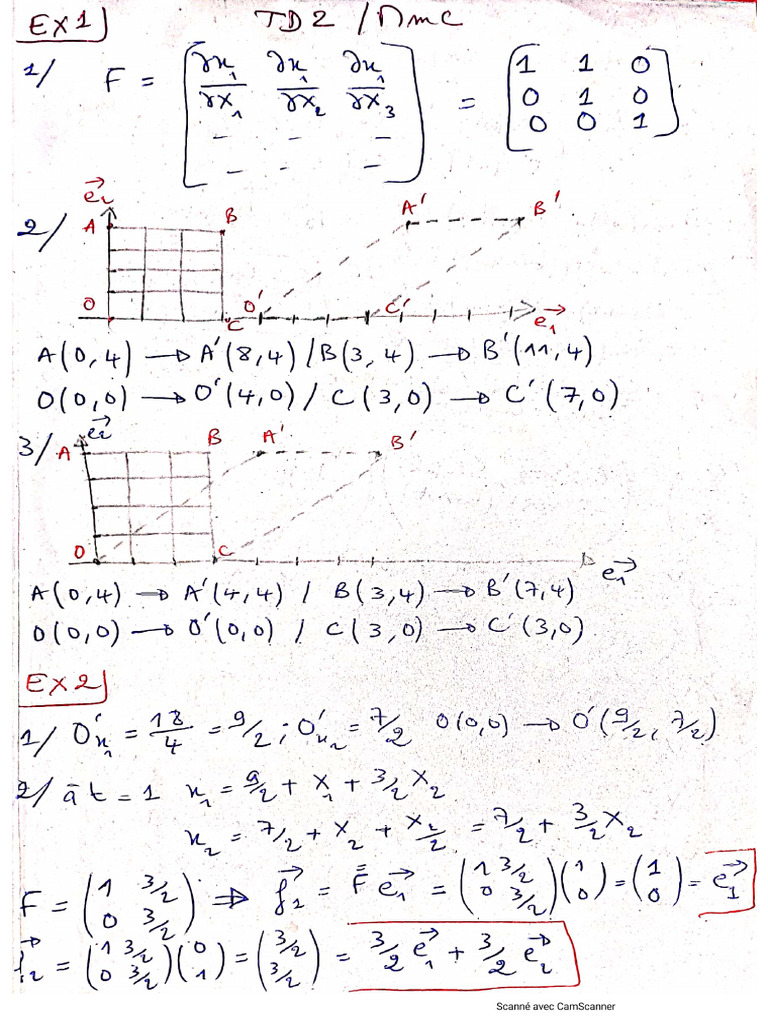 EX1 TD2 / Mmc
1/ F = [∂x₁/∂X₁ ∂x₁/∂X₂ ∂x₁/∂X₃ ; - - - ; - - -] = [1 1 0 ; 0 1 0 ; 0 0 1]
2/ e₂→ A B A' B'
O C O' C' e₁→
A(0,4) → A'(8,4) / B(3,4) → B'(11,4)
O(0,0) → O'(4,0) / C(3,0) → C'(7,0)
3/ A e₂→ B A' B'
O C e₁→
A(0,4) → A'(4,4) / B(3,4) → B'(7,4)
O(0,0) → O'(0,0) / C(3,0) → C'(3,0)
EX2
1/ O'x₁ = 18/4 = 9/2 ; O'x₂ = 7/2 O(0,0) → O'(9/2, 7/2)
2/ à t = 1 x₁ = 9/2 + X₁ + 3/2 X₂
x₂ = 7/2 + X₂ + X₂/2 = 7/2 + 3/2 X₂
F = (1 3/2 ; 0 3/2) ⇒ f₁→ = F e₁→ = (1 3/2 ; 0 3/2)(1 ; 0) = (1 ; 0) = e₁→
f₂→ = (1 3/2 ; 0 3/2)(0 ; 1) = (3/2 ; 3/2) = 3/2 e₁→ + 3/2 e₂→
Scanné avec CamScanner